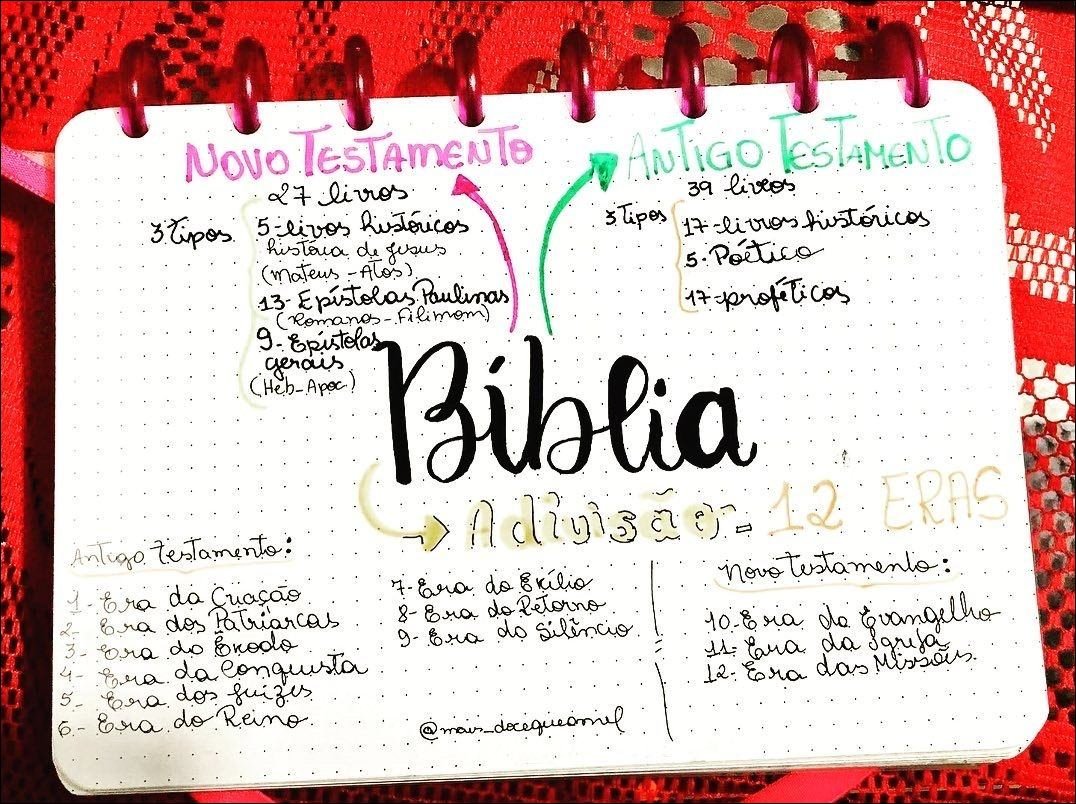 NOVO TESTAMENTO
27 livros
3 tipos
5-livos históricos
história de Jesus
(Mateus - Atos)
13- Epístolas Paulinas
(Romanos - Filimom)
9- Epístolas
gerais
(Heb-Apoc)
ANTIGO TESTAMENTO
39 livros
3 tipos
17-livros históricos
5- Poético
17-proféticos
Bíblia
A divisão - 12 ERAS
Antigo Testamento:
1- Era da Criação
2- Era dos Patriarcas
3- Era do Êxodo
4- Era da Conquista
5- Era dos Juizes
6- Era do Reino
7- Era do Exílio
8- Era do Retorno
9- Era do Silêncio
Novo Testamento:
10. Era do Evangelho
11. Era da Igreja
12. Era das Missões.
@mais_docequeomel